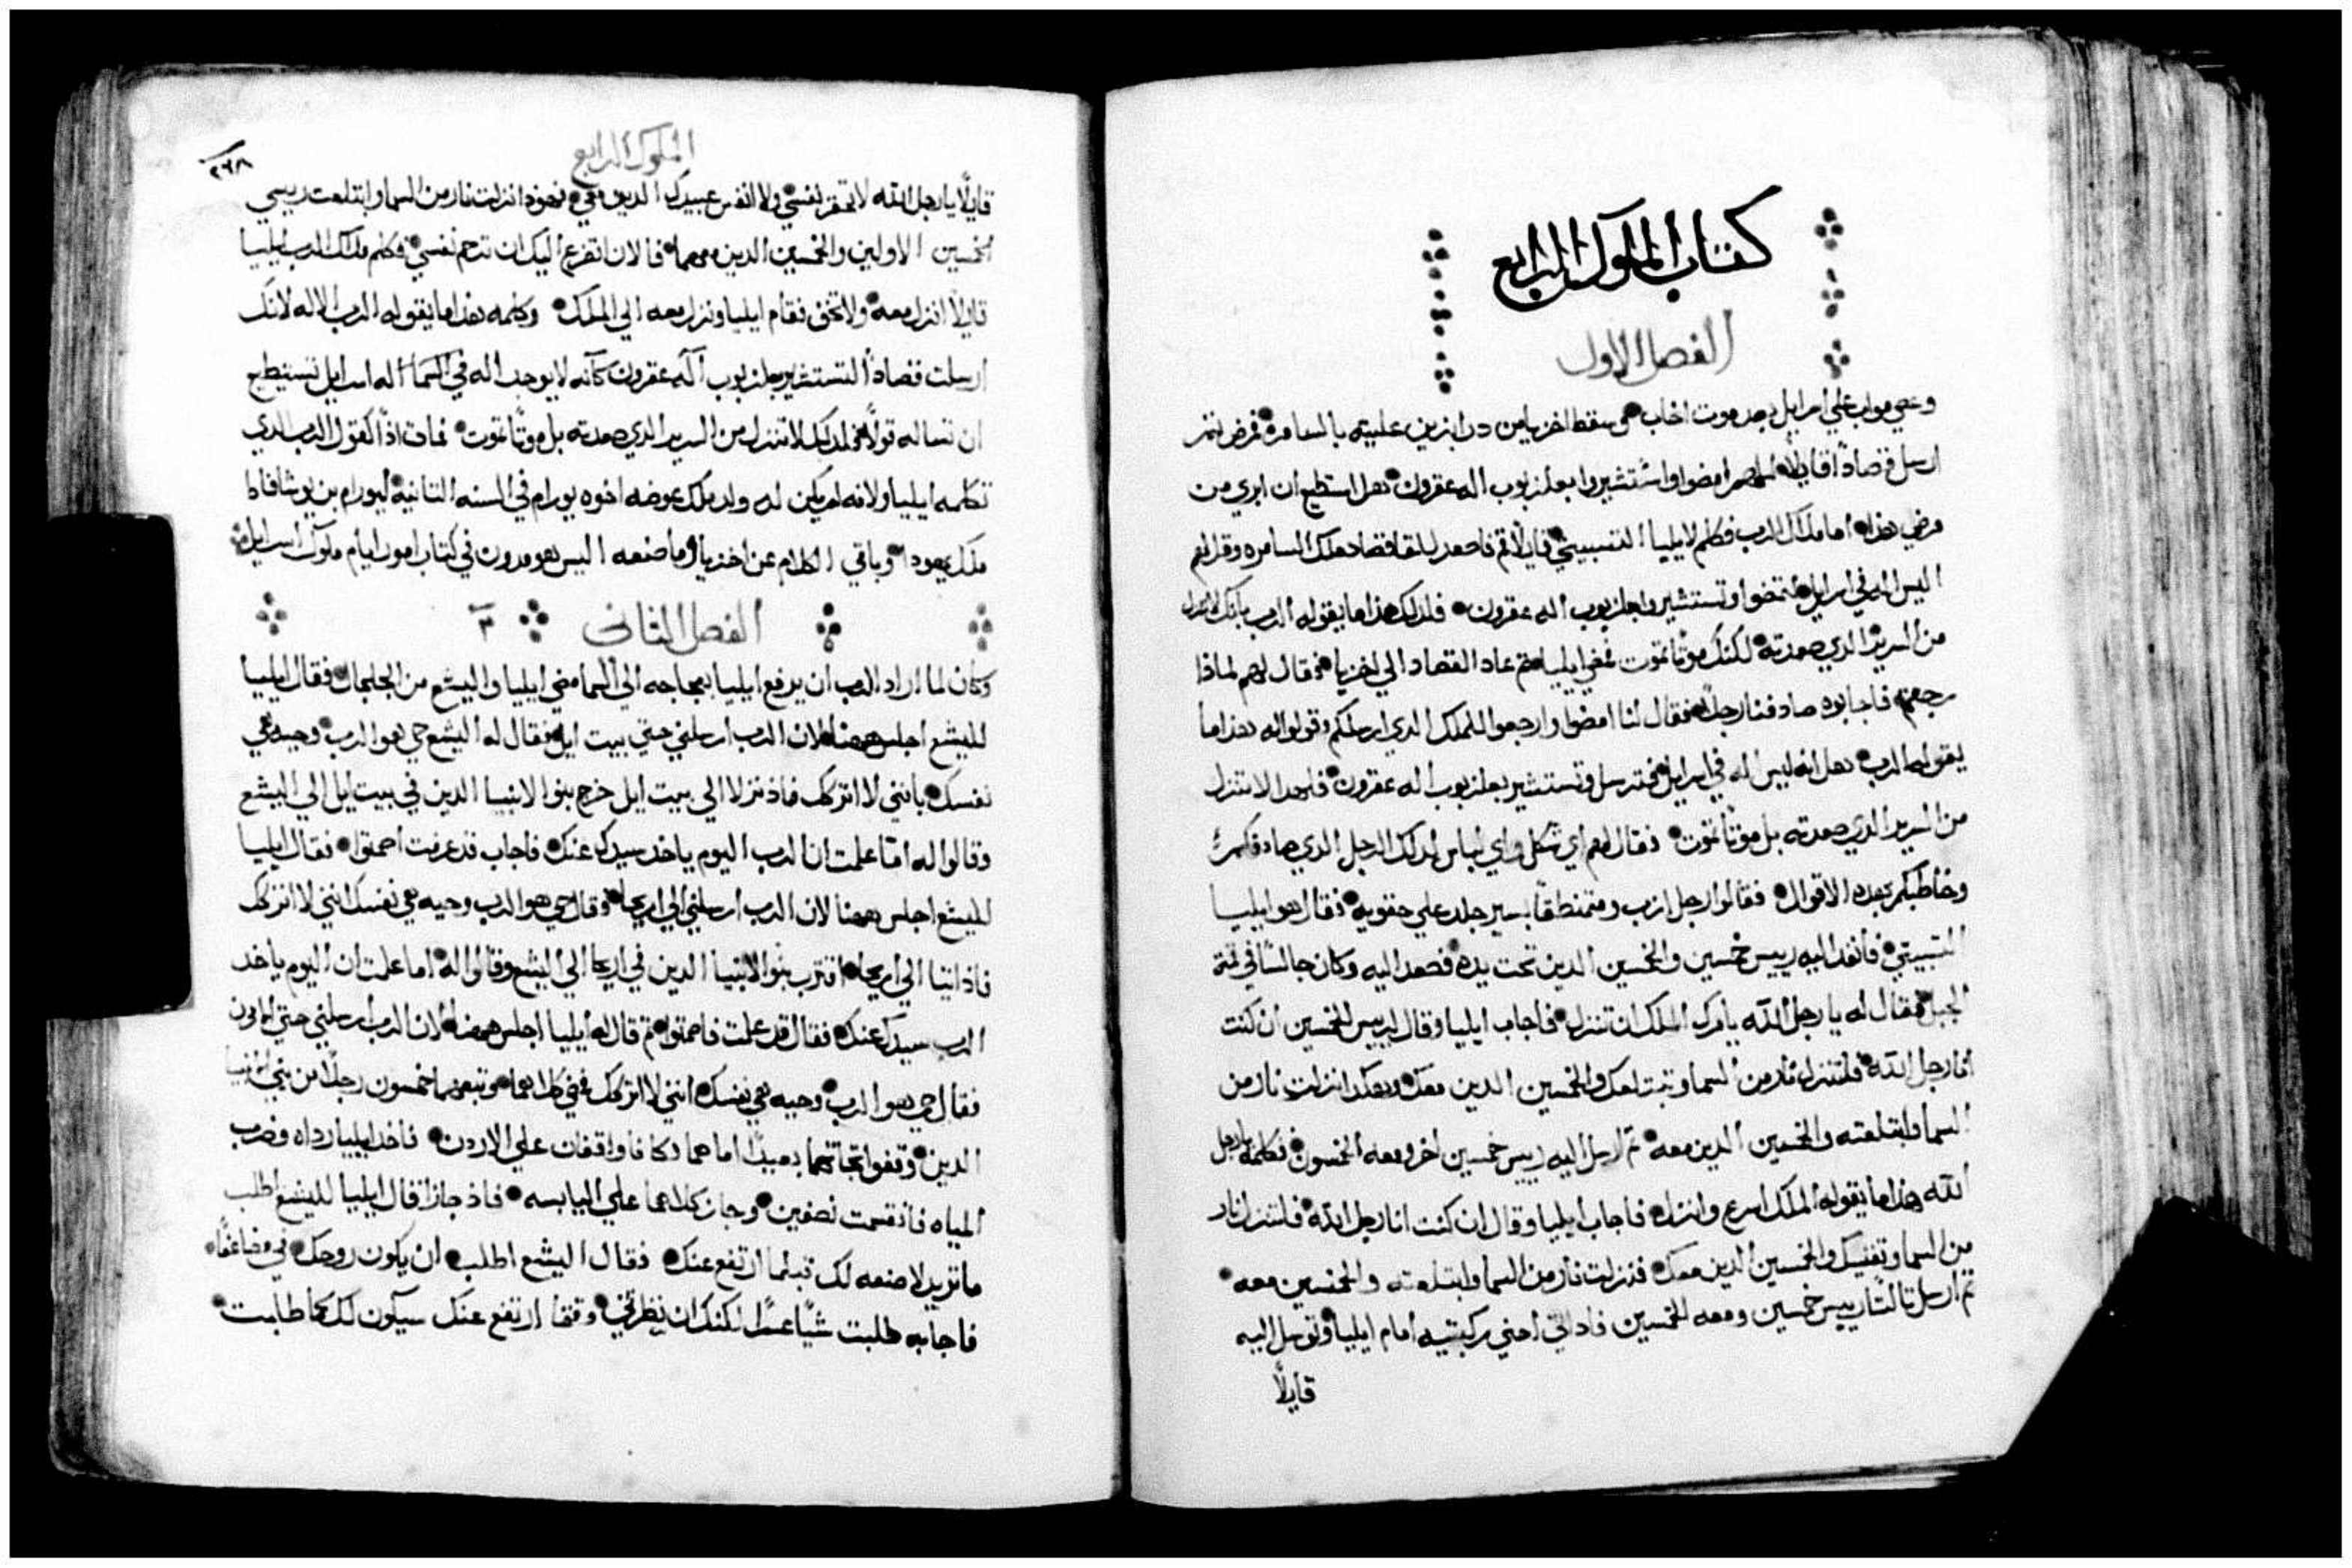 كتاب الملوك الرابع
الفصل الاول
وعصي مواب علي اسرايل بعد موت اخاب سقط اخزيا من درابزين عليته بالسامره فمرض ثم
ارسل قصاداً قايلاً لهم امضوا واستشيروا بعلزبوب اله عقرون هل استطيع ان ابري من
مرضي هذا اما ملاك الرب فكلم لايليا التسبيتي قايلاً قم فاصعد لملتقا قصاد ملك السامره وقل لهم
اليس اله في اسرايل لتمضوا وتستشيروا بعلزبوب اله عقرون فلذلك هذا ما يقوله الرب بانك لا تنزل
من السرير الدي صعدته لكنك موتاً تموت فمضي ايليا ثم عاد القصاد الي اخزيا فقال لهم لماذا
رجعتم فاجابوه صادفنا رجل فقال لنا امضوا وارجعوا للملك الدي ارسلكم وقولوا له هذا ما
يقوله الرب هل انه ليس اله في اسرايل فترسل وتستشير بعلزبوب اله عقرون فلهدا لا تنزل
من السرير الدي صعدته بل موتاً تموت فقال لهم اي شكل واي لباس لدلك الرجل الدي صادفكم
وخاطبكم بهده الاقوال فقالوا رجل ازب ومتمنطقاً بسير جلد علي حقويه فقال هو ايليا
التسبيتي فانفد اليه رييس خمسين والخمسين الدين تحت يده فصعد اليه وكان جالساً في قمة
الجبل فقال له يا رجل الله يامرك الملك ان تنزل فاجاب ايليا وقال لرييس الخمسين ان كنت
انا رجل الله فلتنزل نار من السما وتبتلعك والخمسين الدين معك وهكدا نزلت نار من
السما وابتلعته والخمسين الدين معه ثم ارسل اليه رييس خمسين اخر ومعه الخمسون فكلمه يا رجل
الله هذا ما يقوله الملك اسرع وانزل فاجاب ايليا وقال ان كنت انا رجل الله فلتنزل نار
من السما وتفنيك والخمسين الدين معك فنزلت نار من السما وابتلعته والخمسين معه
ثم ارسل ثالثاً رييس خمسين ومعه الخمسين فاد اتي احني ركبتيه امام ايليا وتوسل اليه
قايلاً
الملوك الرابع
٢٦٨
قايلاً يا رجل الله لا تحتقر نفسي ولا انفس عبيدك الدين معي نزلت نار من السما وابتلعت رييسي
الخمسين الاولين والخمسين الدين معهما فالان اتضرع اليك ان ترحم نفسي فكلم ملاك الرب ايليا
قايلاً انزل معه ولا تخف فقام ايليا ونزل معه الي الملك وكلمه هذا ما يقوله الرب الاله لانك
ارسلت قصاداً لتستشير بعلزبوب اله عقرون كانه لا يوجد اله في اسرايل تستطيع
ان تساله قولاً فلدلك لا تنزل من السرير الدي صعدته بل موتاً تموت فمات اذاً كقول الرب الدي
تكلمه ايليا ولانه لم يكن له ولد ملك عوضه اخوه يورام في السنه التانيه ليورام بن يوشافاط
ملك يهودا وباقي الكلام عن اخزيا وما صنعه اليس هو مدون في كتاب امور ايام ملوك اسرايل
الفصل الثاني
وكان لما اراد الرب ان يرفع ايليا بعجاجه الي السما مضي ايليا واليشع من الجلجال فقال ايليا
لليشع اجلس ههنا لان الرب ارسلني حتي بيت ايل فقال له اليشع حي هو الرب وحيه هي
نفسك بانني لا اتركك فاذ نزلا الي بيت ايل خرج بنوا الانبيا الدين في بيت ايل الي اليشع
وقالوا له اما علمت ان الرب اليوم ياخد سيدك عنك فاجاب قد عرفت اصمتوا فقال ايليا
لليشع اجلس ههنا لان الرب ارسلني الي اريحا وقال حي هو الرب وحيه هي نفسك انني لا اتركك
فاذ اتيا الي اريحا اقترب بنوا الانبيا الدين في اريحا الي اليشع وقالوا له اما علمت ان اليوم ياخد
الرب سيدك عنك فقال قد علمت فاصمتوا ثم قال له ايليا اجلس ههنا لان الرب ارسلني حتي الاردن
فقال حي هو الرب وحيه هي نفسك انني لا اتركك فمضي كلاهما وتبعهما خمسون رجلاً من بني الانبيا
الدين وقفوا تجاههما بعيداً اما هما فكانا واقفان علي الاردن فاخد ايليا رداه وضرب
المياه فانقسمت نصفين وجاز كلاهما علي اليابسه فاذ جازا قال ايليا لليشع اطلب
ما تريد لاصنعه لك قبلما ارتفع عنك فقال اليشع اطلب ان يكون روحك في مضاعفاً
فاجابه طلبت شياً عسراً لكنك ان نظرتني وقتما ارتفع عنك سيكون لك كما طلبت